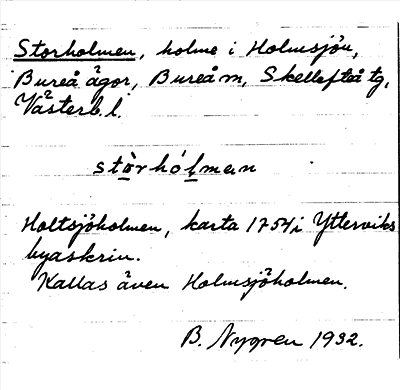 Storholmen, holme i Holmsjön,
Bureå ägor, Bureå m, Skellefteå tg,
Västerb. l.
stò̱rhól̲man
Holtsjöholmen, karta 1754 i Ytterviks
byaskrin.
Kallas även Holmsjöholmen.
B. Nygren 1932.